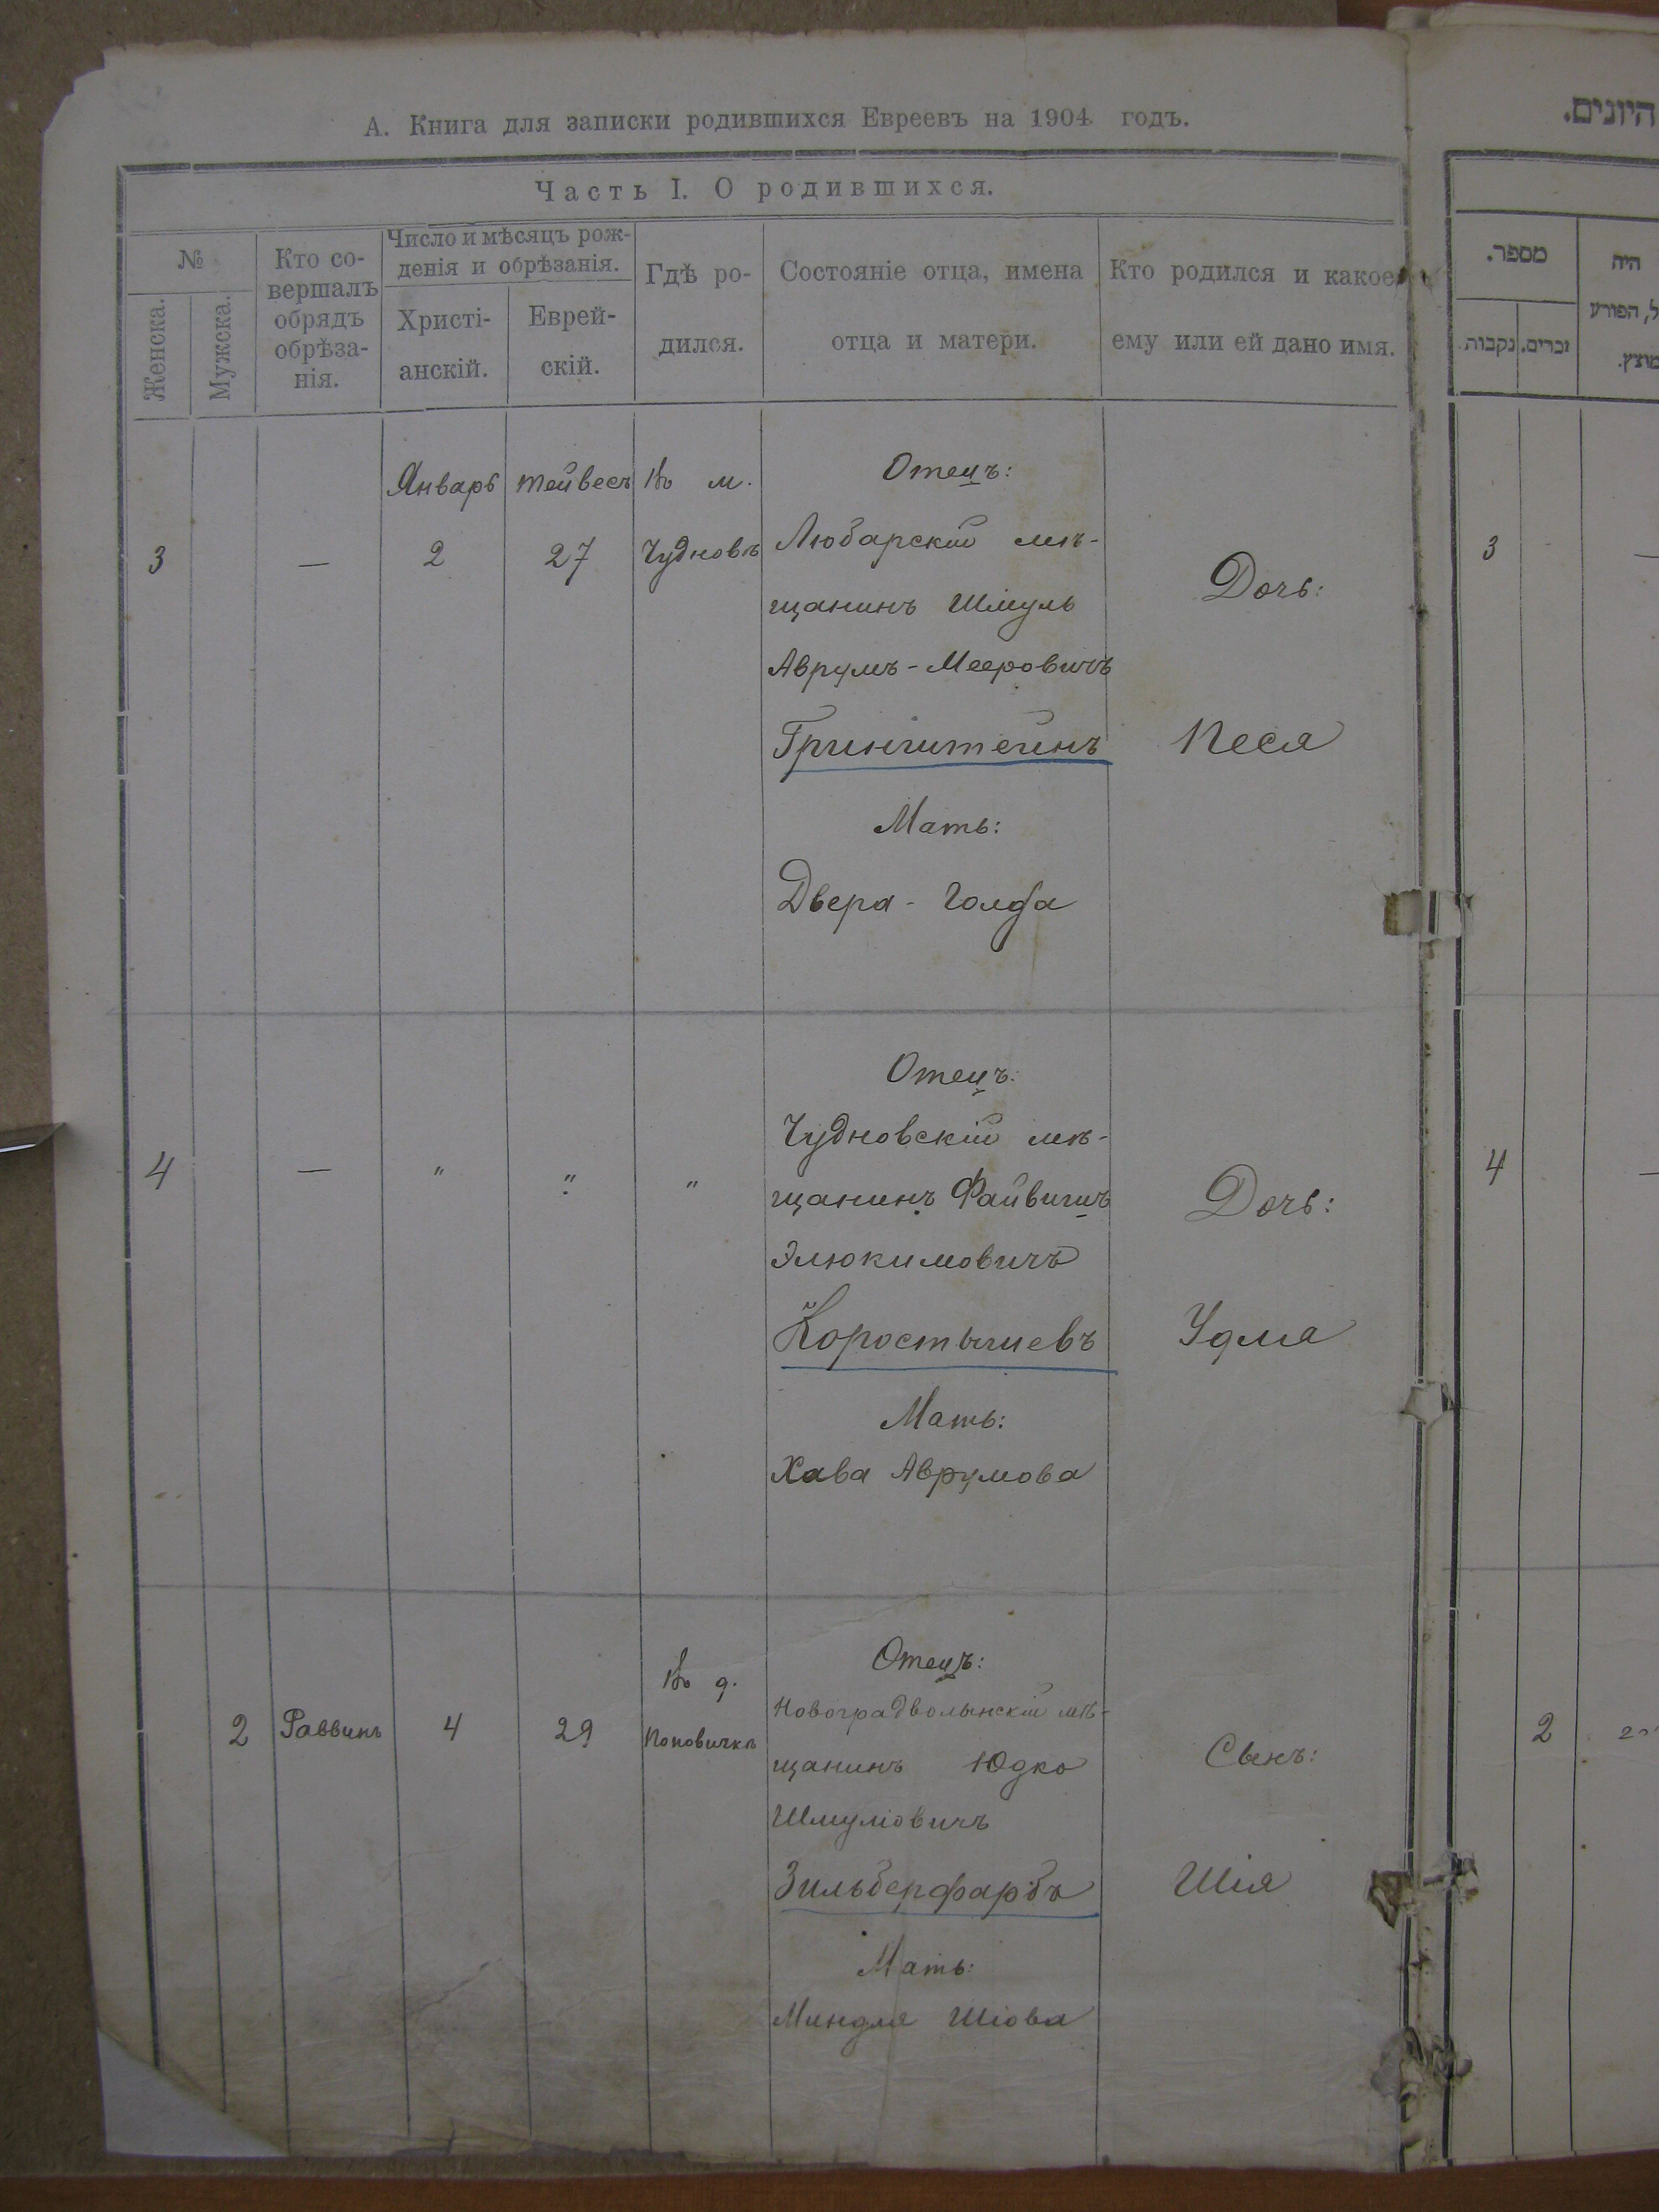 А. Книга для записки родившихся Евреевъ на 1904 годъ.
Часть I. О родившихся.
№
Женска.
Мужска.
Кто со-
вершалъ
обрядъ
обрѣза-
нія.
Число и мѣсяцъ рож-
денія и обрѣзанія.
Христі-
анскій.
Еврей-
скій.
Гдѣ ро-
дился.
Состояніе отца, имена
отца и матери.
Кто родился и какое
ему или ей дано имя.
3
—
Январь
2
Тейвесъ
27
Въ м.
Чудновѣ
Отецъ:
Любарскій мѣ-
щанинъ Шмуль
Аврумъ-Мееровичъ
Гринштейнъ
Мать:
Двера-Голда
Дочь:
Песя
4
—
"
"
"
Отецъ:
Чудновскій мѣ-
щанинъ Файвишъ
Элюкимовичъ
Коростышевъ
Мать:
Хава Аврумова
Дочь:
Удля
2
Раввинъ
4
29
Въ д.
Поповичкѣ
Отецъ:
Новоградволынскій мѣ-
щанинъ Юдко
Шмулiовичъ
Зильберфарбъ
Мать:
Миндля Шіова
Сынъ:
Шія
היונים.
מספר.
נקבות
זכרים.
היה
ל, הפורע
מוצץ.
3
—
4
—
2